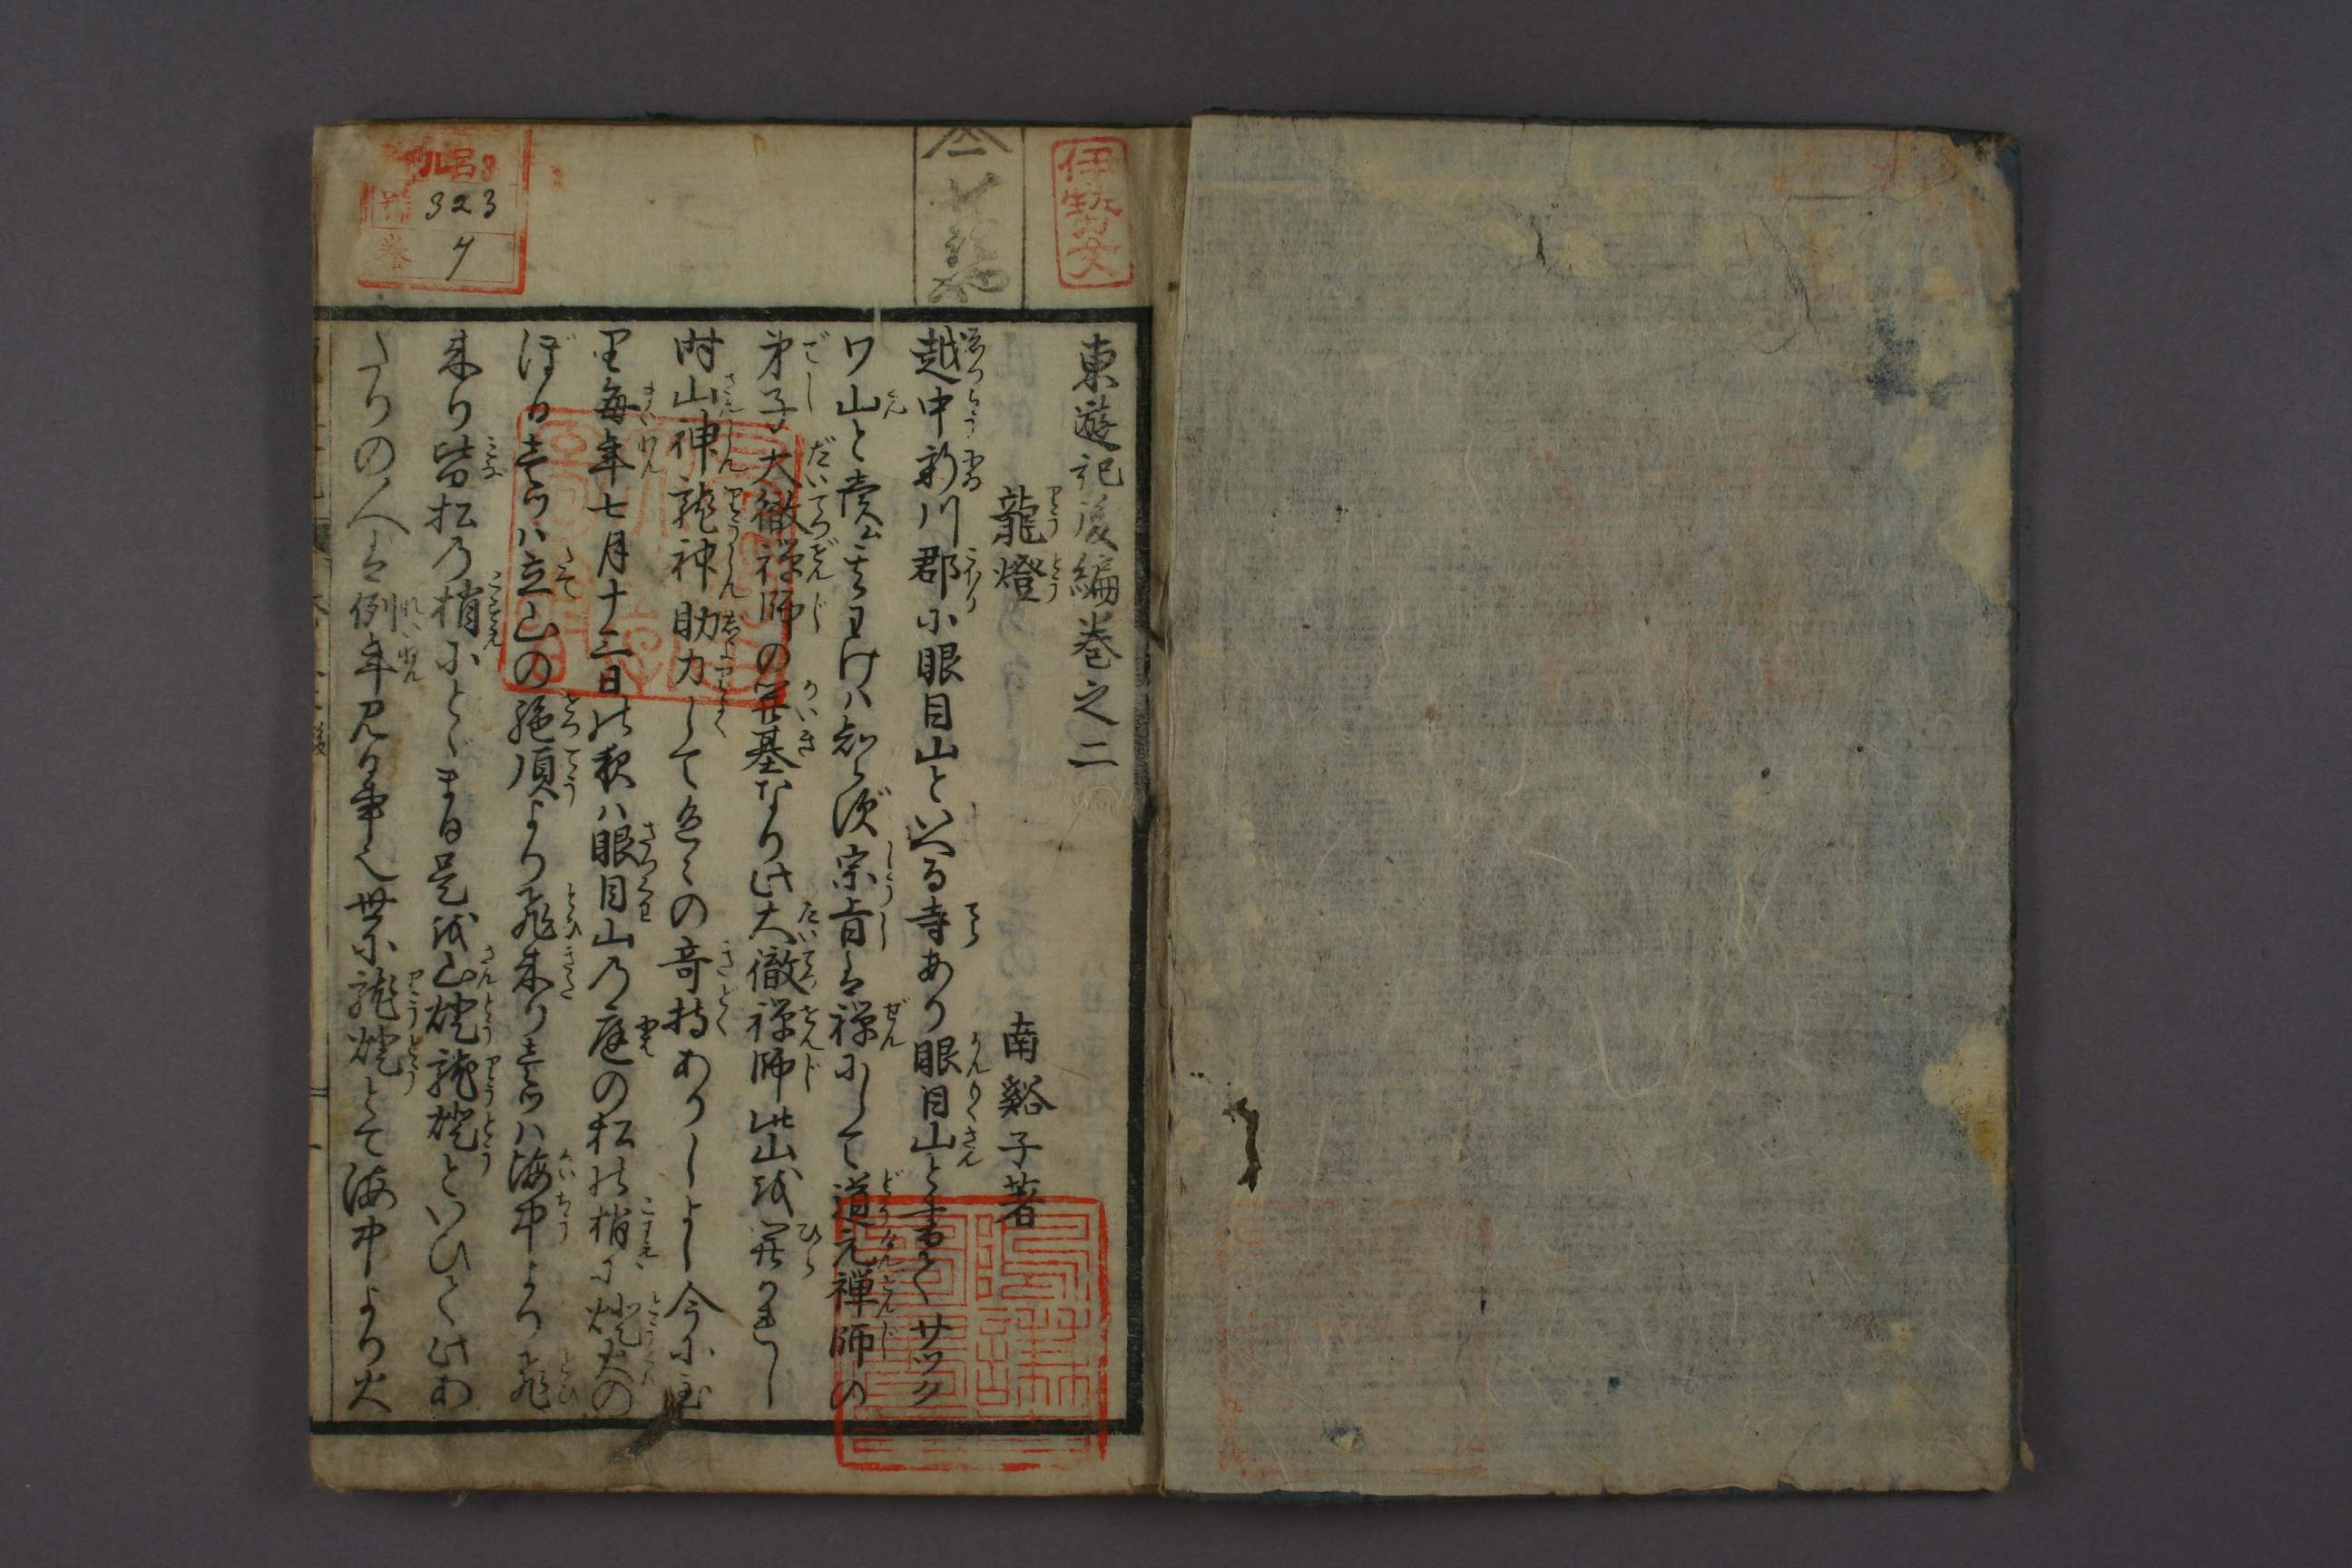 伊勢文
仝 七
323
7
巻
東遊記後編巻之二
南谿子著
龍燈
越中新川郡に眼目山といへる寺あり眼目山と書てサツク
ワ山と読む其わけハ知らず宗旨は禅にして道元禅師の
弟子大徹禅師の開基なり此大徹禅師此山を開かれし
時山神龍神助力して色々の奇特ありしよし今に至
里毎年七月十三日の夜ハ眼目山の庭の松の梢に燈火の
ぼる壱ツハ立山の絶頂より飛来り壱ツハ海中より飛
来り皆松の梢にとゞまる是を山燈龍燈といひて此あ
たりの人は例年見る事也世に龍燈とて海中より火